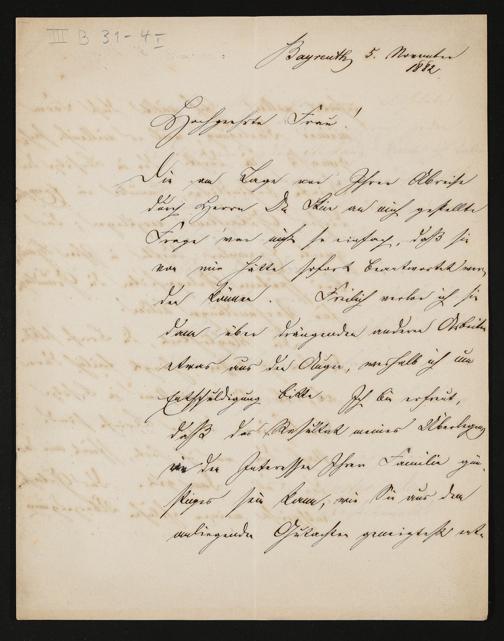 III B 31-4 I
Bayreuth, 5. November
1882.
Hochgeehrte Frau!
Die am Tage vor Ihrer Abreise
durch Herrn Dr. an mich gestellte
Frage war nicht so einfach, daß sie
von mir hätte sofort beantwortet wer-
den können. Freilich verlor ich sie
dann über drängenden anderen Arbeiten
etwas aus den Augen, weshalb ich um
Entschuldigung bitte. Ich bin erfreut,
daß das Resultat meiner Überlegung
den Interessen Ihrer Familie gün-
stiges sein kann, wie Sie aus dem
anliegenden Gutachten geneigtest ent-